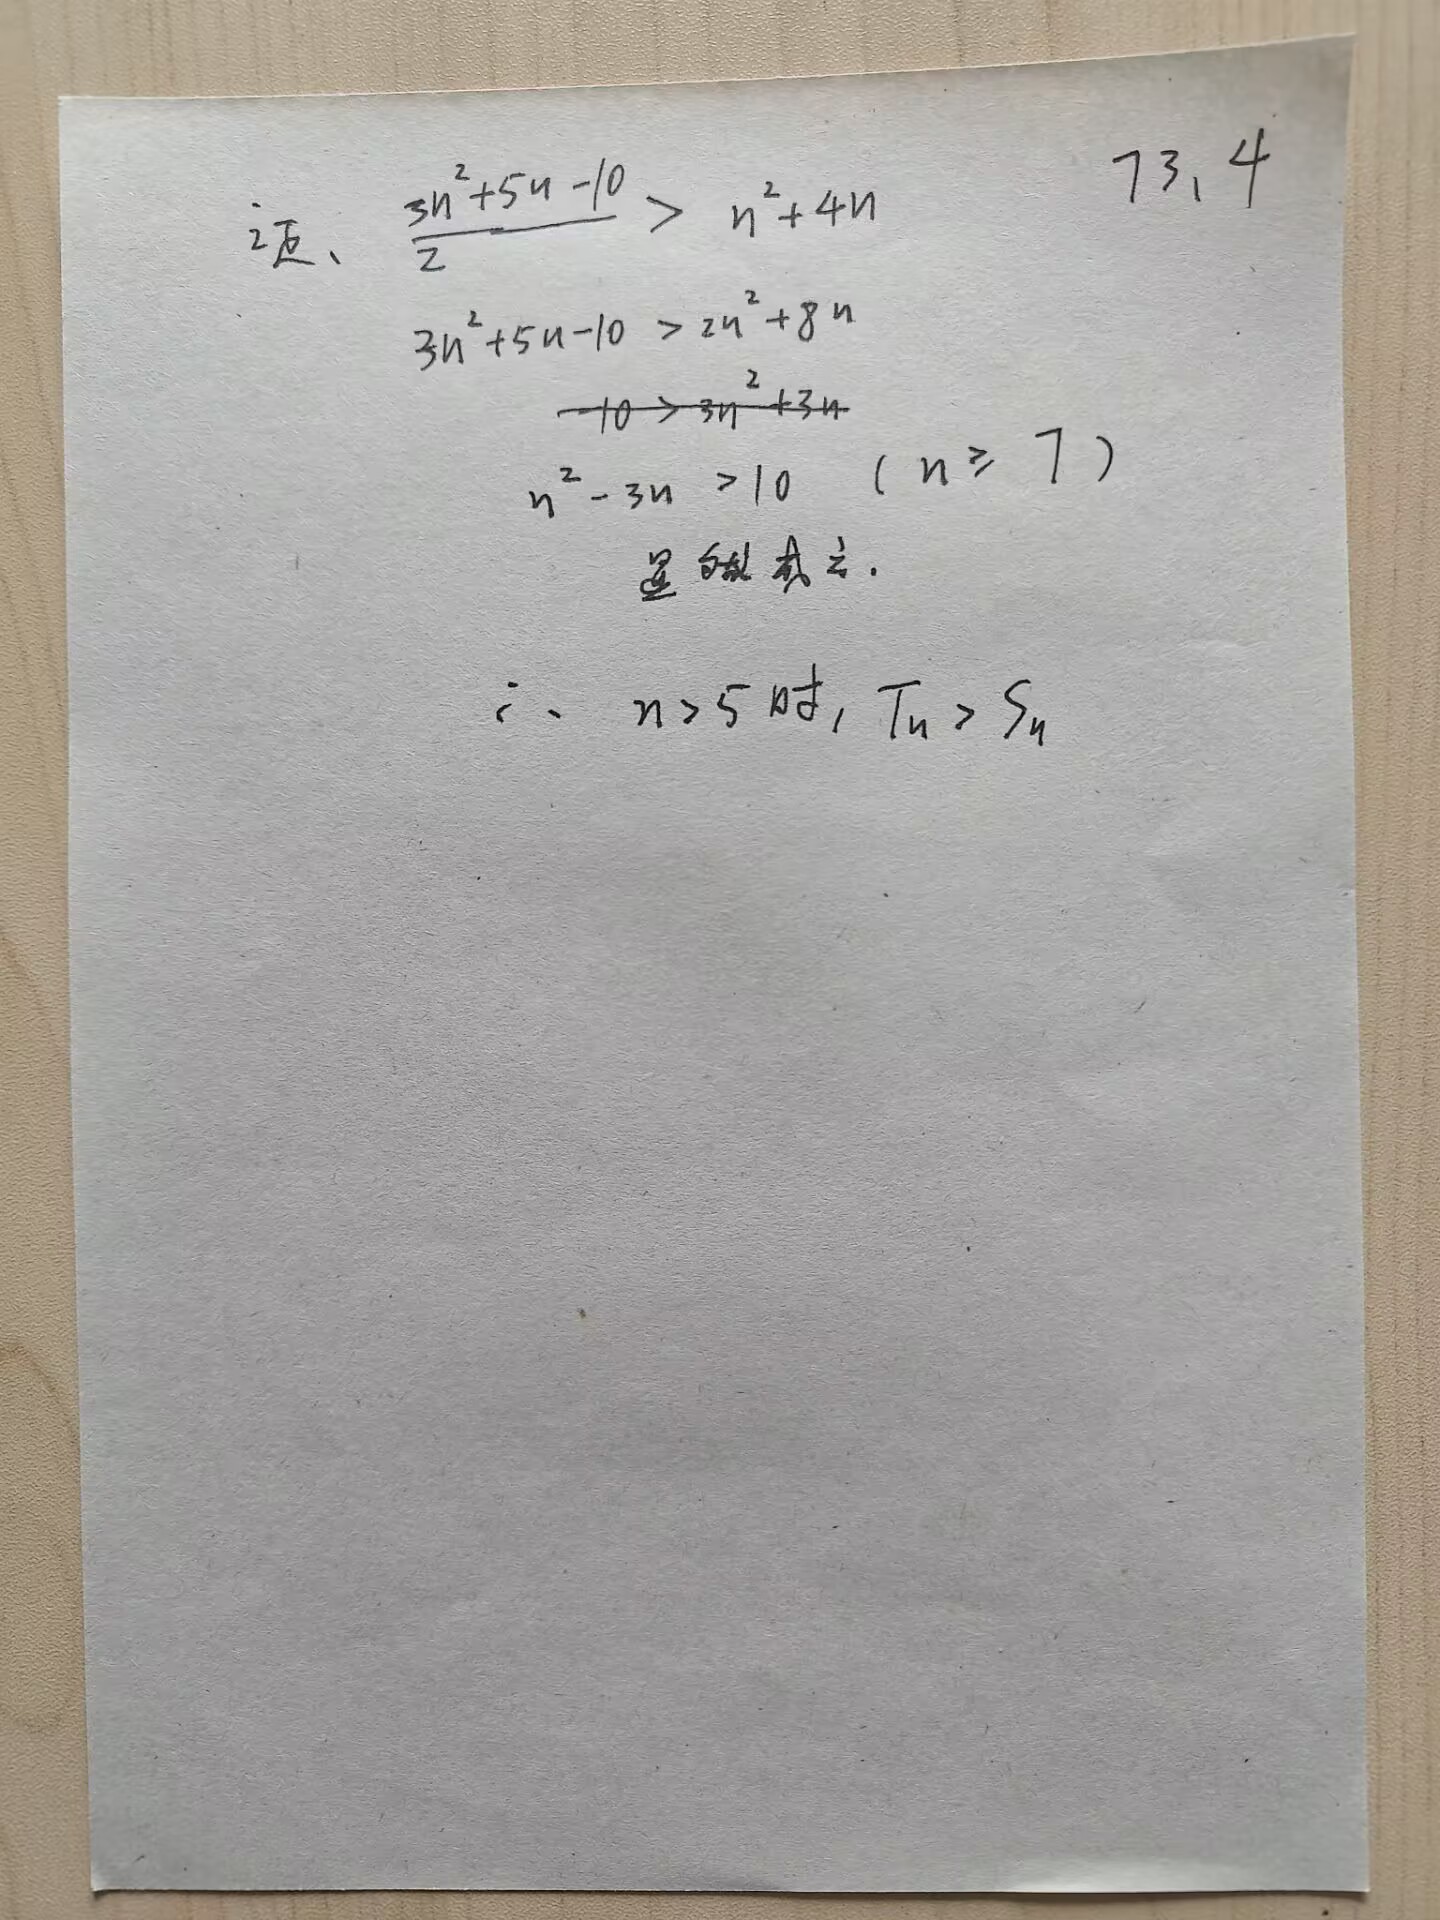 73,4
证、 (3n²+5n-10)/2 > n²+4n
3n²+5n-10 > 2n²+8n
-10 > 3n²+3n
n²-3n >10 (n≥7)
显然成立.
∴ n>5时, Tn > Sn